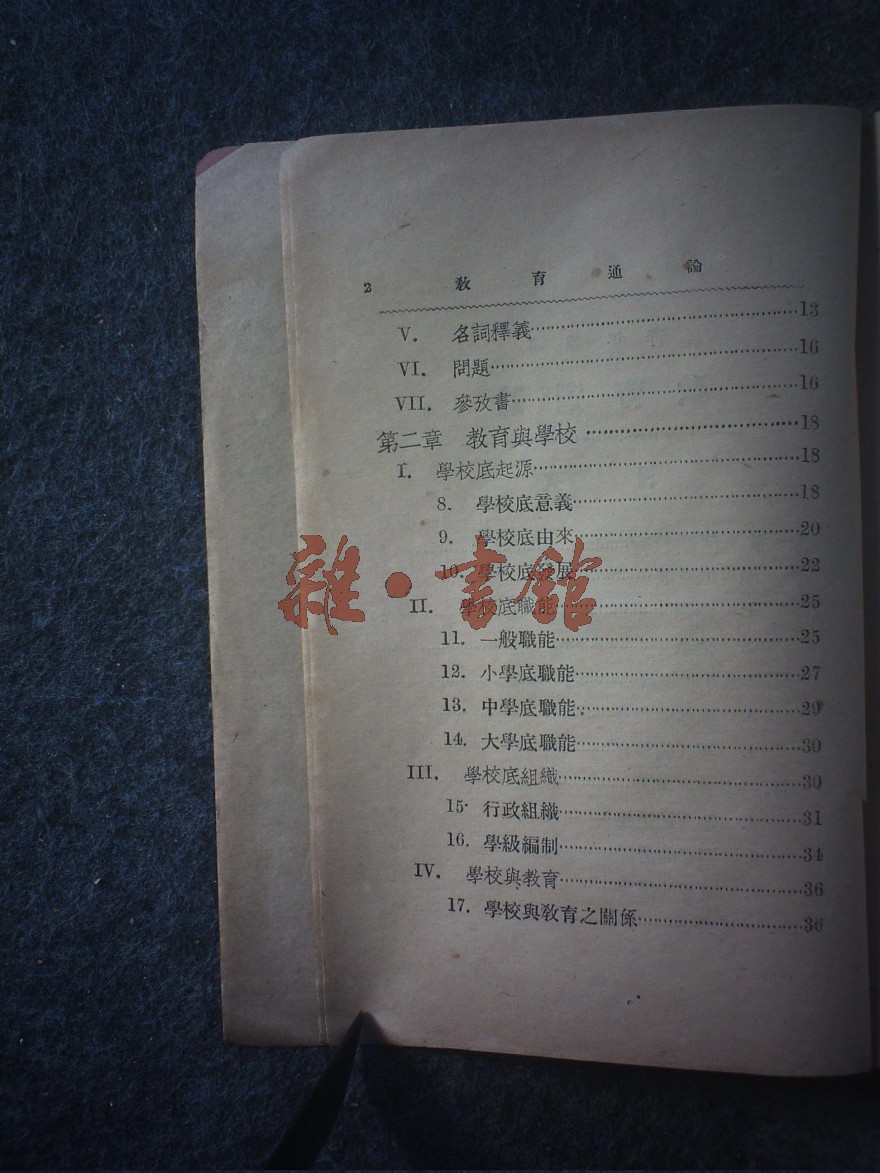 2 教育通論
V. 名詞釋義……13
VI. 問題……16
VII. 參攷書……16
第二章 教育與學校……18
I. 學校底起源……18
8. 學校底意義……18
9. 學校底由來……20
10. 學校底發展……22
II. 學校底職能……25
11. 一般職能……25
12. 小學底職能……27
13. 中學底職能……29
14. 大學底職能……30
III. 學校底組織……30
15. 行政組織……31
16. 學級編制……34
IV. 學校與教育……36
17. 學校與教育之關係……36
雜·書館